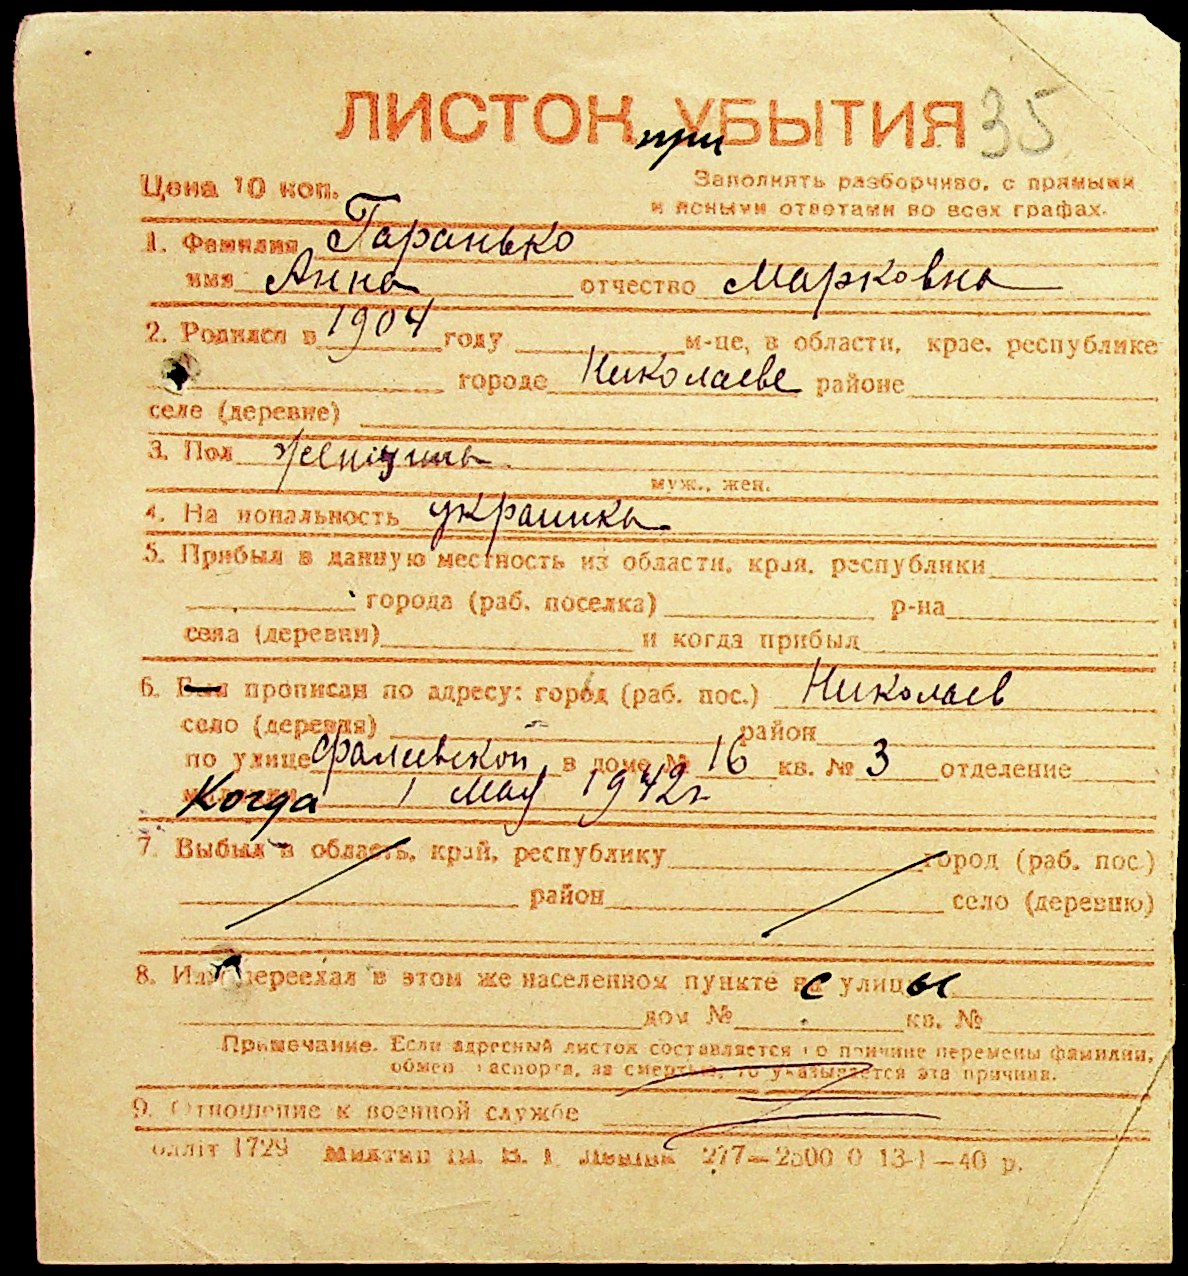 ЛИСТОК УБЫТИЯ 35
при
Цена 10 коп.
Заполнять разборчиво, с прямыми
и ясными ответами во всех графах.
1. Фамилия Гаранько
имя Анна отчество Марковна
2. Родился в 1904 году м-це, в области, крае, республике
городе Николаеве районе
селе (деревне)
3. Пол женщина
муж., жен.
4. На иональность украинка
5. Прибыл в данную местность из области, края, республики
города (раб. поселка) р-на
села (деревни) и когда прибыл
6. прописан по адресу: город (раб. пос.) Николаев
село (деревня) район
по улице Фалеевской в доме № 16 кв. № 3 отделение
Когда 1 мая 1942 г
7. Выбыл в область, край, республику город (раб. пос.)
район село (деревню)
8. Или переехал в этом же населенном пункте с улицы
дом № кв. №
Примечание. Если адресный листок составляется по причине перемены фамилии,
обмен паспорта, за смертью, то указывается эта причина.
9. Отношение к военной службе
олліт 1729 277—2500 0 13-1—40 р.